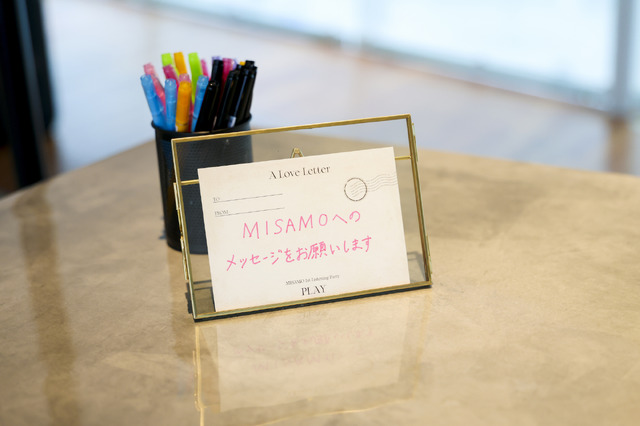 A Love Letter
TO
FROM
MISAMOへの
メッセージをお願いします
MISAMO 1st Listening Party
PLAY